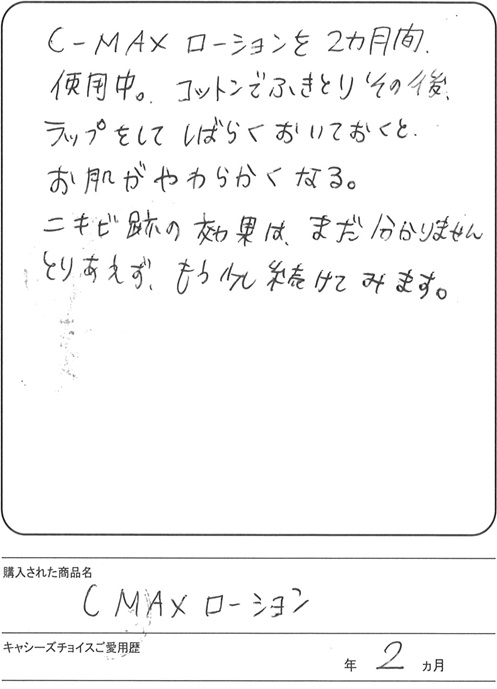 C-MAX ローションを 2カ月間、
使用中。コットンでふきとり その後、
ラップをして しばらく おいておくと、
お肌が やわらかくなる。
ニキビ跡の 効果は、まだ 分かりません
とりあえず、もう少し 続けて みます。
購入された商品名
C MAX ローション
キャシーズチョイスご愛用歴
年 2 ヵ月